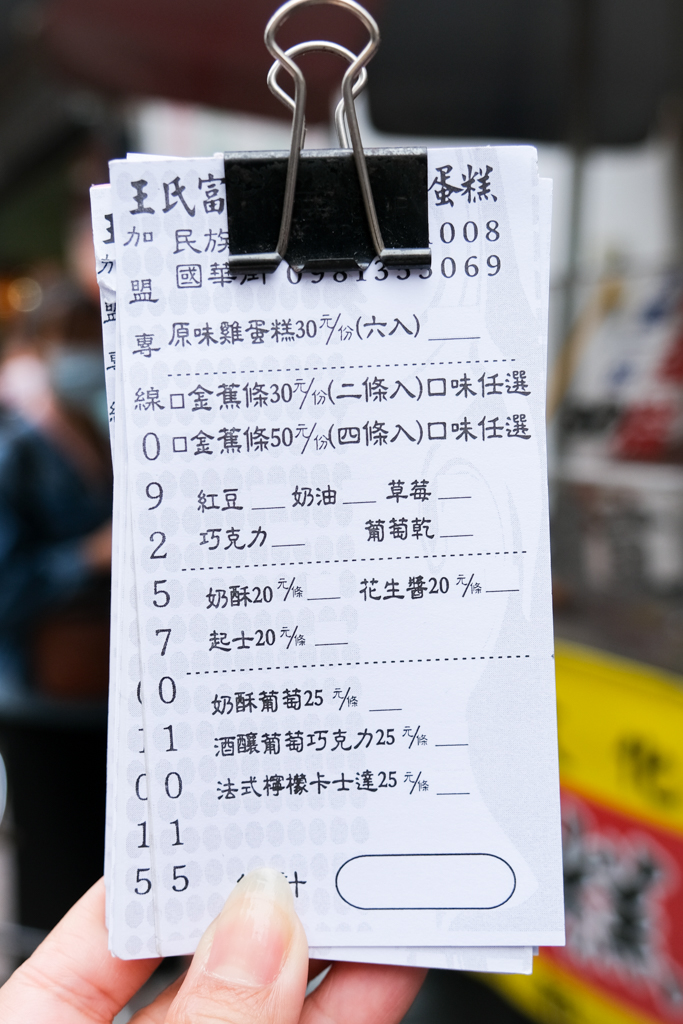 王氏富 蛋糕
民族 008
國華街 0981355069
加盟專線 0925701015
原味雞蛋糕30元/份(六入) ____
□金蕉條30元/份(二條入)口味任選
□金蕉條50元/份(四條入)口味任選
紅豆 ___ 奶油 ___ 草莓 ___
巧克力 ___ 葡萄乾 ___
奶酥20元/條 ___ 花生醬20元/條 ___
起士20元/條 ___
奶酥葡萄25元/條 ___
酒釀葡萄巧克力25元/條 ___
法式檸檬卡士達25元/條 ___
計